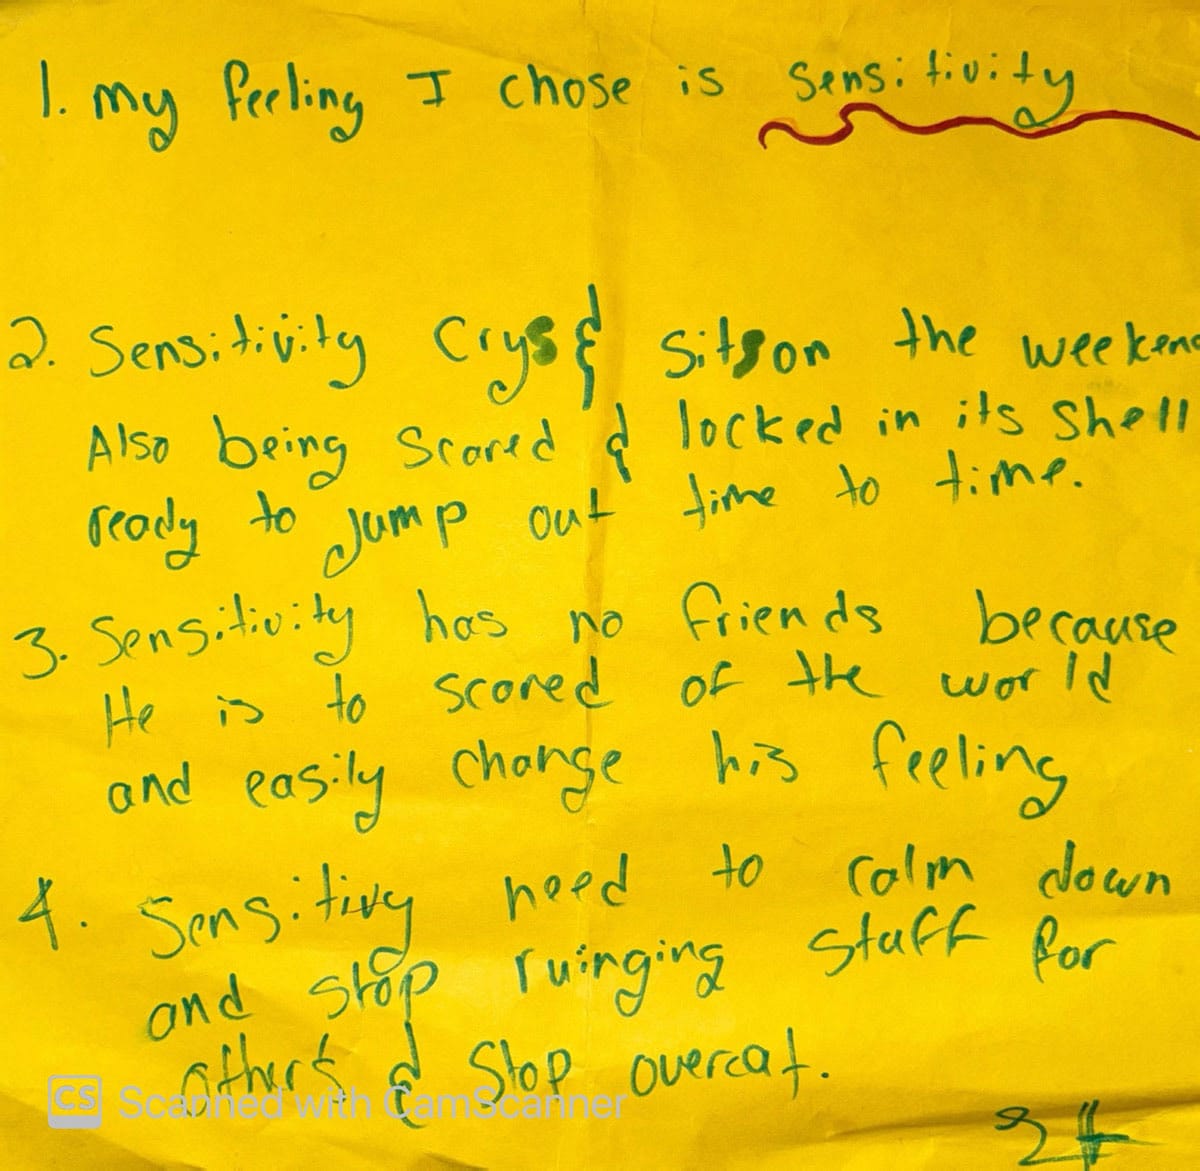 1. my feeling I chose is Sensitivity
2. Sensitivity Crys & Sits on the weekend
Also being Scared & locked in its Shell
ready to Jump out time to time.
3. Sensitivity has no friends because
He is to scared of the world
and easily change his feeling
4. Sensitivy need to calm down
and stop ruinging staff for
others & Stop overcat.
CS Scanned with CamScanner